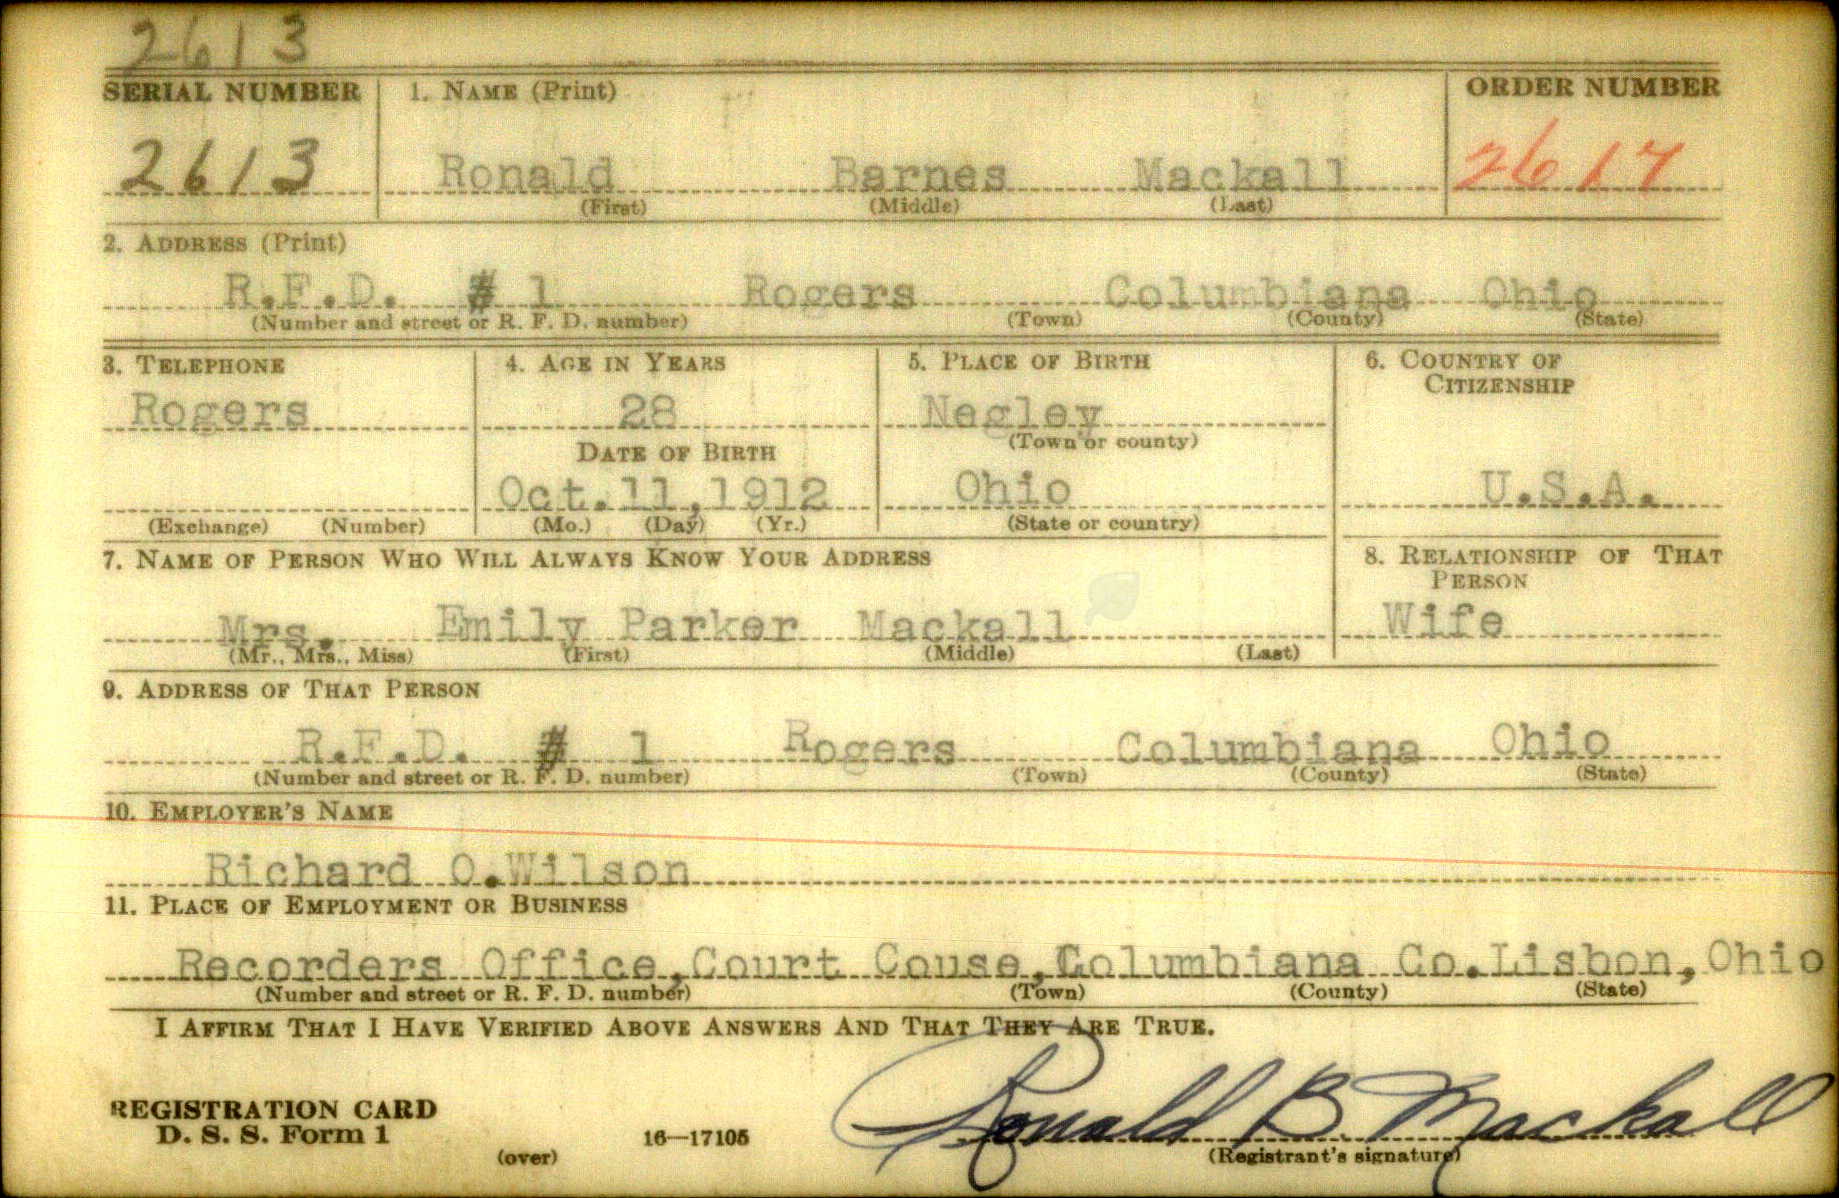 2613
SERIAL NUMBER 1. NAME (Print) ORDER NUMBER
2613 Ronald Barnes Mackall 2617
(First) (Middle) (Last)
2. ADDRESS (Print)
R.F.D. # 1 Rogers Columbiana Ohio
(Number and street or R. F. D. number) (Town) (County) (State)
3. TELEPHONE 4. AGE IN YEARS 5. PLACE OF BIRTH 6. COUNTRY OF
CITIZENSHIP
Rogers 28 Negley
(Town or county)
DATE OF BIRTH
Oct.11,1912 Ohio U.S.A.
(Exchange) (Number) (Mo.) (Day) (Yr.) (State or country)
7. NAME OF PERSON WHO WILL ALWAYS KNOW YOUR ADDRESS 8. RELATIONSHIP OF THAT
PERSON
Mrs. Emily Parker Mackall Wife
(Mr., Mrs., Miss) (First) (Middle) (Last)
9. ADDRESS OF THAT PERSON
R.F.D. # 1 Rogers Columbiana Ohio
(Number and street or R. F. D. number) (Town) (County) (State)
10. EMPLOYER'S NAME
Richard O.Wilson
11. PLACE OF EMPLOYMENT OR BUSINESS
Recorders Office,Court Couse,Columbiana Co.Lisbon,Ohio
(Number and street or R. F. D. number) (Town) (County) (State)
I AFFIRM THAT I HAVE VERIFIED ABOVE ANSWERS AND THAT THEY ARE TRUE.
REGISTRATION CARD
D. S. S. Form 1 16—17105 Ronald B. Mackall
(over) (Registrant's signature)